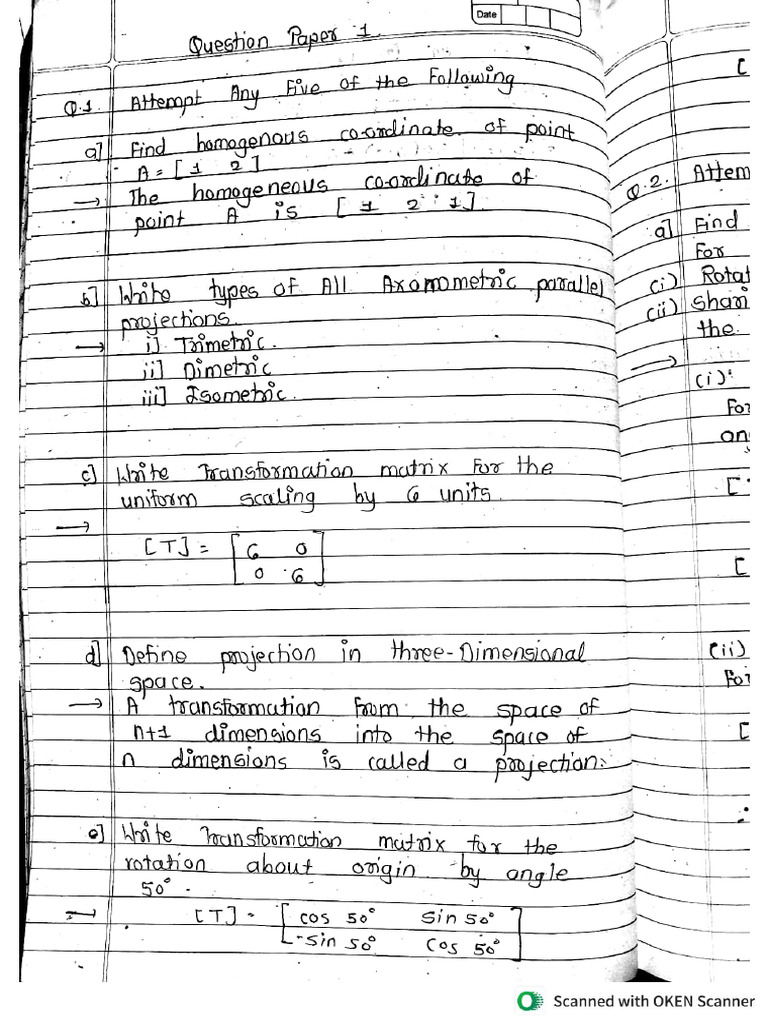 Date
Question Paper 1.
Q.1 Attempt Any Five of the Following
a] Find homogenous co-ordinate of point
A = [ 1 2 ]
→ The homogeneous co-ordinate of
point A is [ 1 2 1 ].
b] Write types of All Axomometric parallel
projections.
→ i] Trimetric.
ii] Dimetric
iii] Isometric.
c] Write Transformation matrix for the
uniform scaling by 6 units.
→
[T] = [ 6 0
0 6 ]
d] Define projection in three-Dimensional
space.
→ A transformation from the space of
n+1 dimensions into the space of
n dimensions is called a projection.
e] Write Transformation matrix for the
rotation about origin by angle
50°.
→ [T] = [ cos 50° sin 50°
-sin 50° cos 50° ]
[
Q.2. Attem
a] Find
For
(i) Rotat
(ii) shari
the
→
(i):
For
an
[
[
(ii)
For
[
Scanned with OKEN Scanner